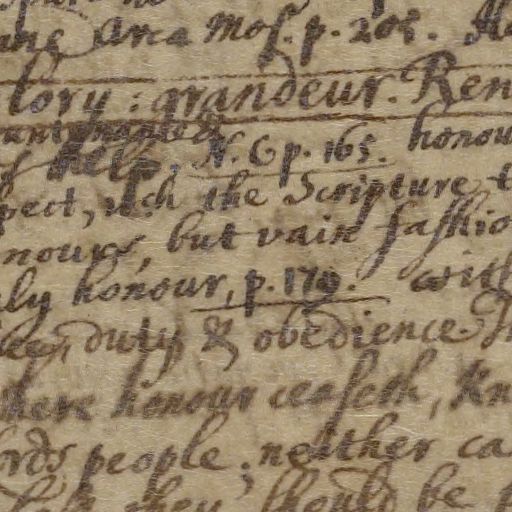 Arca Mos. p. 205.
lory: grandeur. Ren
help, N. C p. 165. honou
pect, wch the Scripture t
nours, but vain fashio
ly honour, p. 179. with
duty & obedience.
here honour ceaseth, Kn
ords people; neither ca
they should be